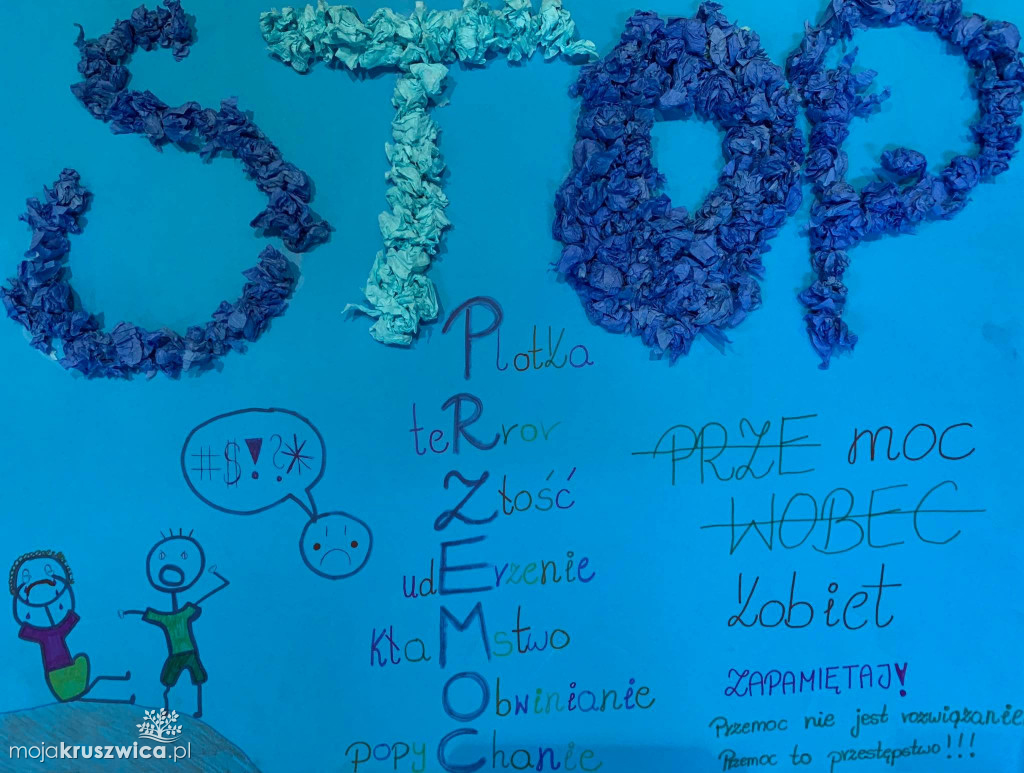 STOP
Plotka
teRror
#$!?*
Złość
PRZE moc
WOBEC
udErzenie
kobiet
kłaMstwo
Obwinianie
ZAPAMIĘTAJ!
Przemoc nie jest rozwiązanie
popyChanie
Przemoc to przestępstwo!!!
mojakruszwica.pl